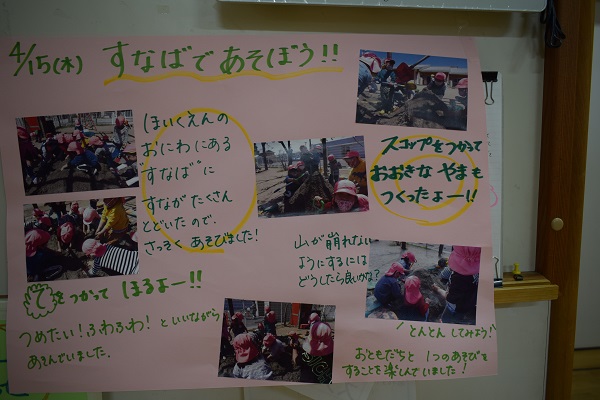 4/15(木) すなばであそぼう!!
ほいくえんの
おにわにある
"すなば"に
すながたくさん
とどいたので、
さっそくあそびました!
スコップをつかって
おおきな やまも
つくったよー!!
山が崩れない
ようにするには
どうしたら良いかな?
てをつかって ほるよー!!
つめたい!ふわふわ!といいながら
あそんでいました。
とんとん してみよう!
おともだちと 1つのあそびを
することを楽しんでいました!